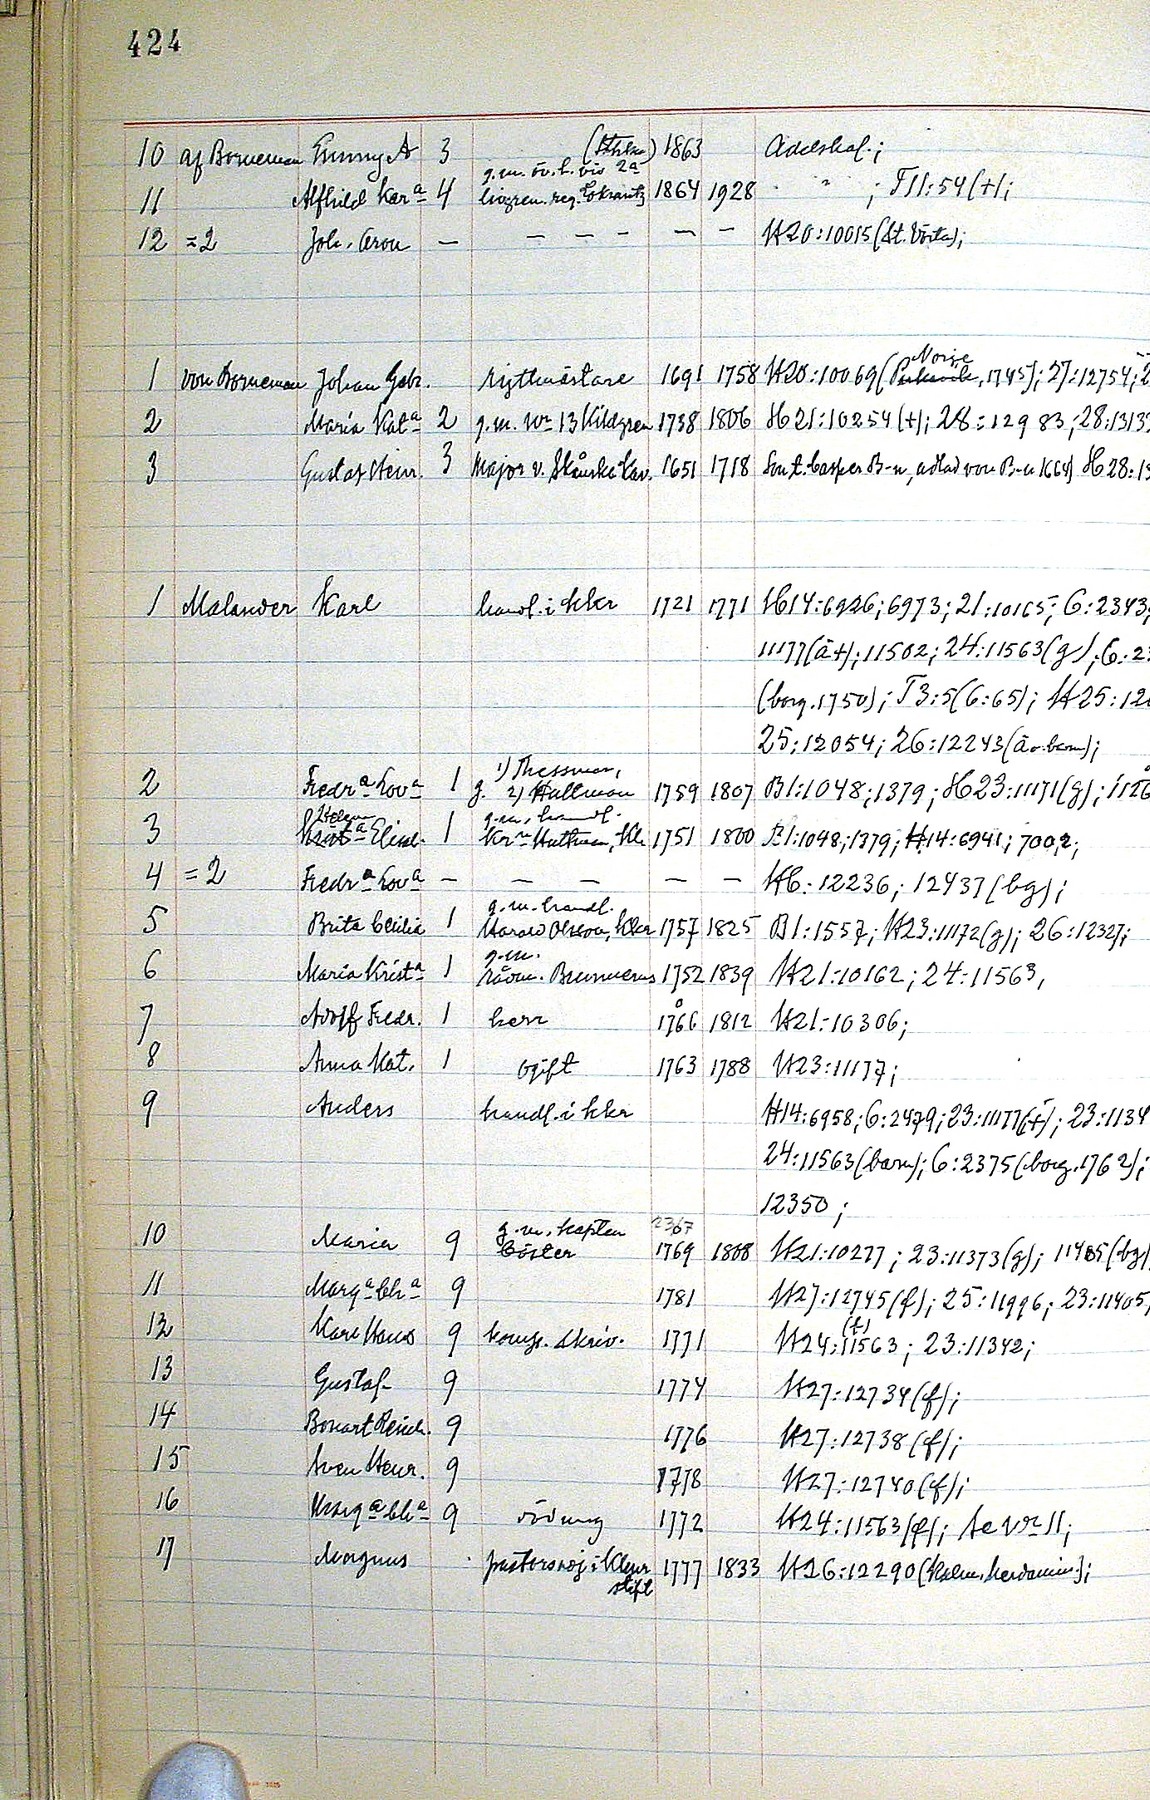 424
10 af Borneman Emmy A 3 1863 Adelskal.;
g.m. öv.l. vis 2a
11 Alfhild Kara 4 livgren.reg. 1864 1928 " ; T11:54(+);
12 =2 Joh. Aron — — — — — — H20:10015(St. Värta);
Norje
1 von Borneman Johan Gabr. ryttmästare 1691 1758 H20:10069( , 1745); 27:12754; 2
2 Maria Kata 2 g.m. Nr 13 Kildgren 1738 1806 H21:10254(+); 28:12983; 28:1313
3 Gustaf Henr. 3 Major v. Skånska Kav. 1651 1718 Son t. Casper B-n, adlad von B-n 1664) H28:1
1 Malander Karl handl. i Kkr 1721 1771 H14:6926; 6973; 21:10165; 6:2343;
11177(ä+); 11502; 24:11563(g); 6:2
(borg. 1750); T3:5(6:65); H25:12
25:12054; 26:12243(ä o. barn);
1) Thessman,
2 Fredra Lova 1 g. 2) Hultman 1759 1807 B1:1048; 1379; H23:11171(g);
Helena g.m. handl.
3 Elisab. 1 Krn Hultman, Kkr 1751 1800 B1:1048; 1379; H14:6941; 7002;
4 =2 Fredra Lova — — — — — — H6:12236; 12437(bg);
g.m. handl.
5 Brita Cecilia 1 Harald Olsson, Kkr 1757 1825 B1:1557; H23:11172(g); 26:12327;
g.m.
6 Maria Krista 1 rådm. Brunnerus 1752 1839 H21:10162; 24:11563,
7 Adolf Fredr. 1 herr 1766 1812 H21:10306;
8 Anna Kat. 1 ogift 1763 1788 H23:11177;
9 Anders handl. i Kkr H14:6958; 6:2479; 23:11177(+); 23:1134
24:11563(barn); 6:2375(borg. 1762);
12350;
g.m. kapten 2367
10 Maria 9 Cöster 1769 1808 H21:10277; 23:11373(g); 11405(bg)
11 Marga Cha 9 1781 H27:12745(f); 25:11996; 23:11405,
(f)
12 Karl Hans 9 komp. skriv. 1771 H24:11563; 23:11342;
13 Gustaf 9 1774 H27:12734(f);
14 Bonart Reinh. 9 1776 H27:12738(f);
15 Sven Henr. 9 1778 H27:12740(f);
16 Marga Cha 9 dödung 1772 H24:11563(f); Se Nr 11;
17 Magnus pastorsadj. i Klmr 1777 1833 H26:12290(
stift